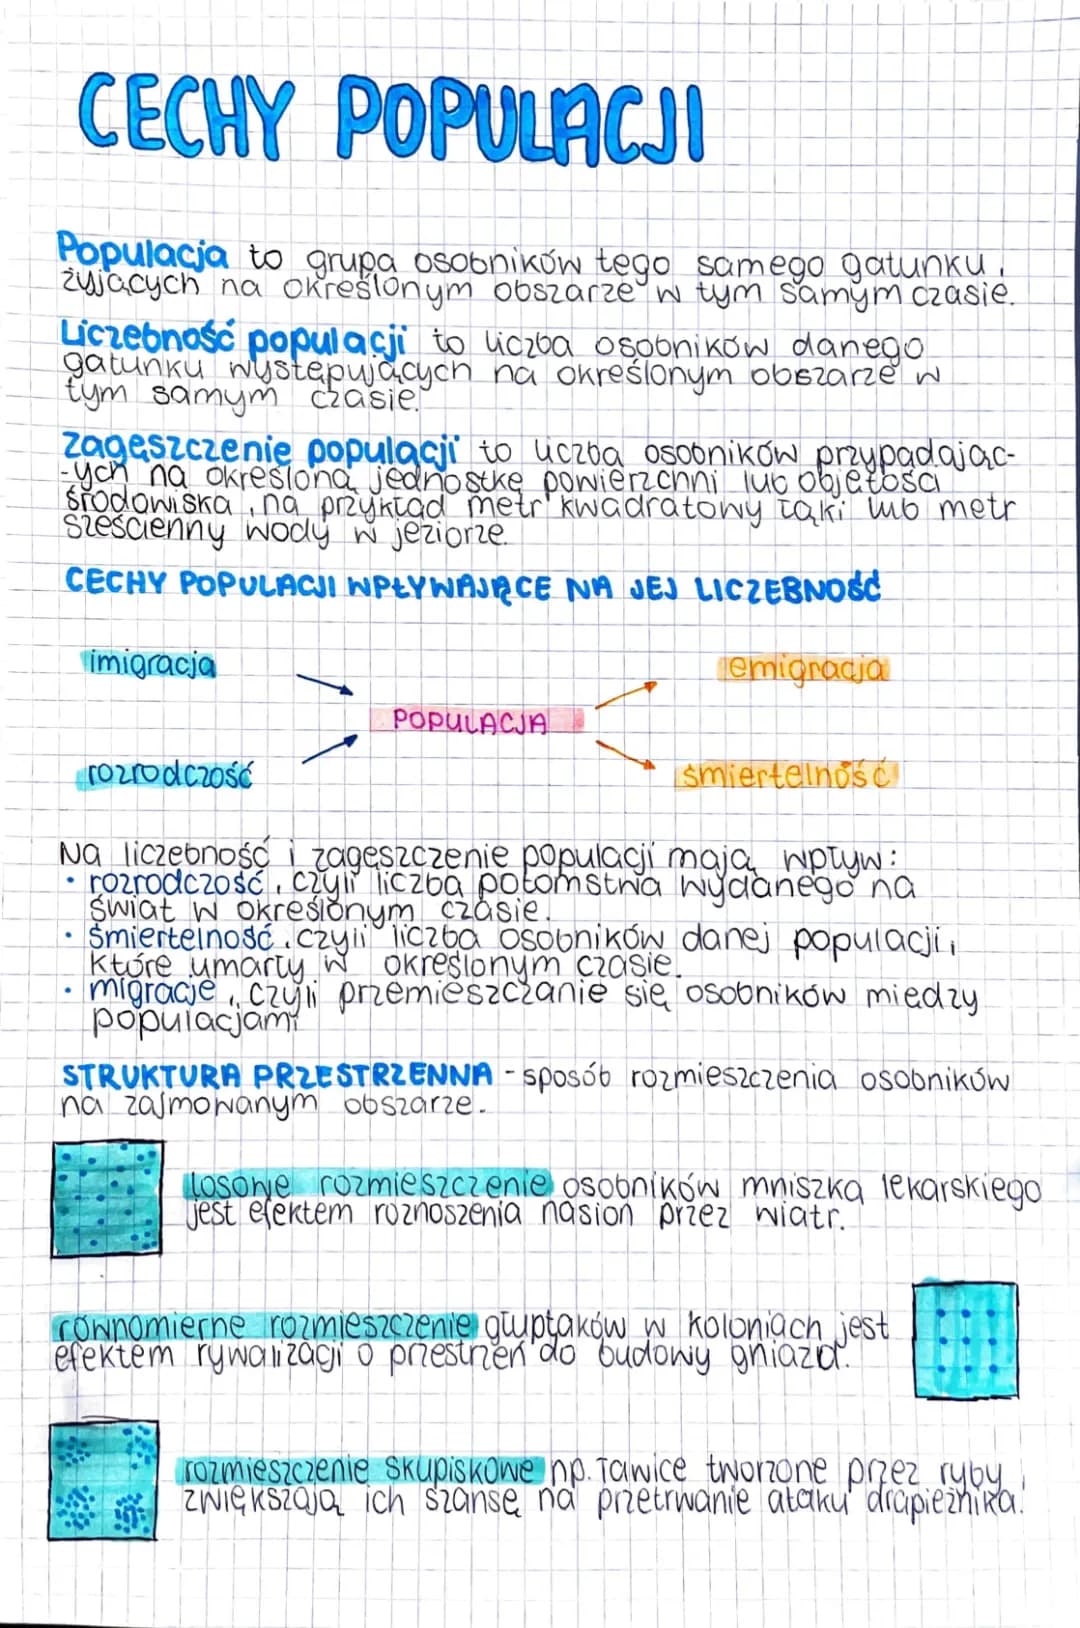 CECHY POPULACJI
Populacja to grupa osobników tego samego gatunku,
żyjących na określonym obszarze w tym samym czasie.
Liczebność populacji to liczba osobników danego
gatunku występujących na określonym obszarze w
tym samym czasie.
Zagęszczenie populacji to liczba osobników przypadając-
-ych na określoną jednostkę powierzchni lub objętości
środowiska, na przykład metr kwadratowy łąki lub metr
sześcienny wody w jeziorze.
CECHY POPULACJI WPŁYWAJĄCE NA JEJ LICZEBNOŚĆ
imigracja
emigracja
POPULACJA
rozrodczość
śmiertelność
Na liczebność i zagęszczenie populacji mają wpływ:
• rozrodczość, czyli liczba potomstwa wydanego na
świat w określonym czasie.
• śmiertelność, czyli liczba osobników danej populacji,
które umarły w określonym czasie.
• migracje, czyli przemieszczanie się osobników między
populacjami
STRUKTURA PRZESTRZENNA - sposób rozmieszczenia osobników
na zajmowanym obszarze.
Losowe rozmieszczenie osobników mniszka lekarskiego
jest efektem roznoszenia nasion przez wiatr.
równomierne rozmieszczenie głuptaków w koloniach jest
efektem rywalizacji o przestrzeń do budowy gniazd.
rozmieszczenie skupiskowe np. Ławice tworzone przez ryby,
zwiększają ich szansę na przetrwanie ataku drapieżnika.